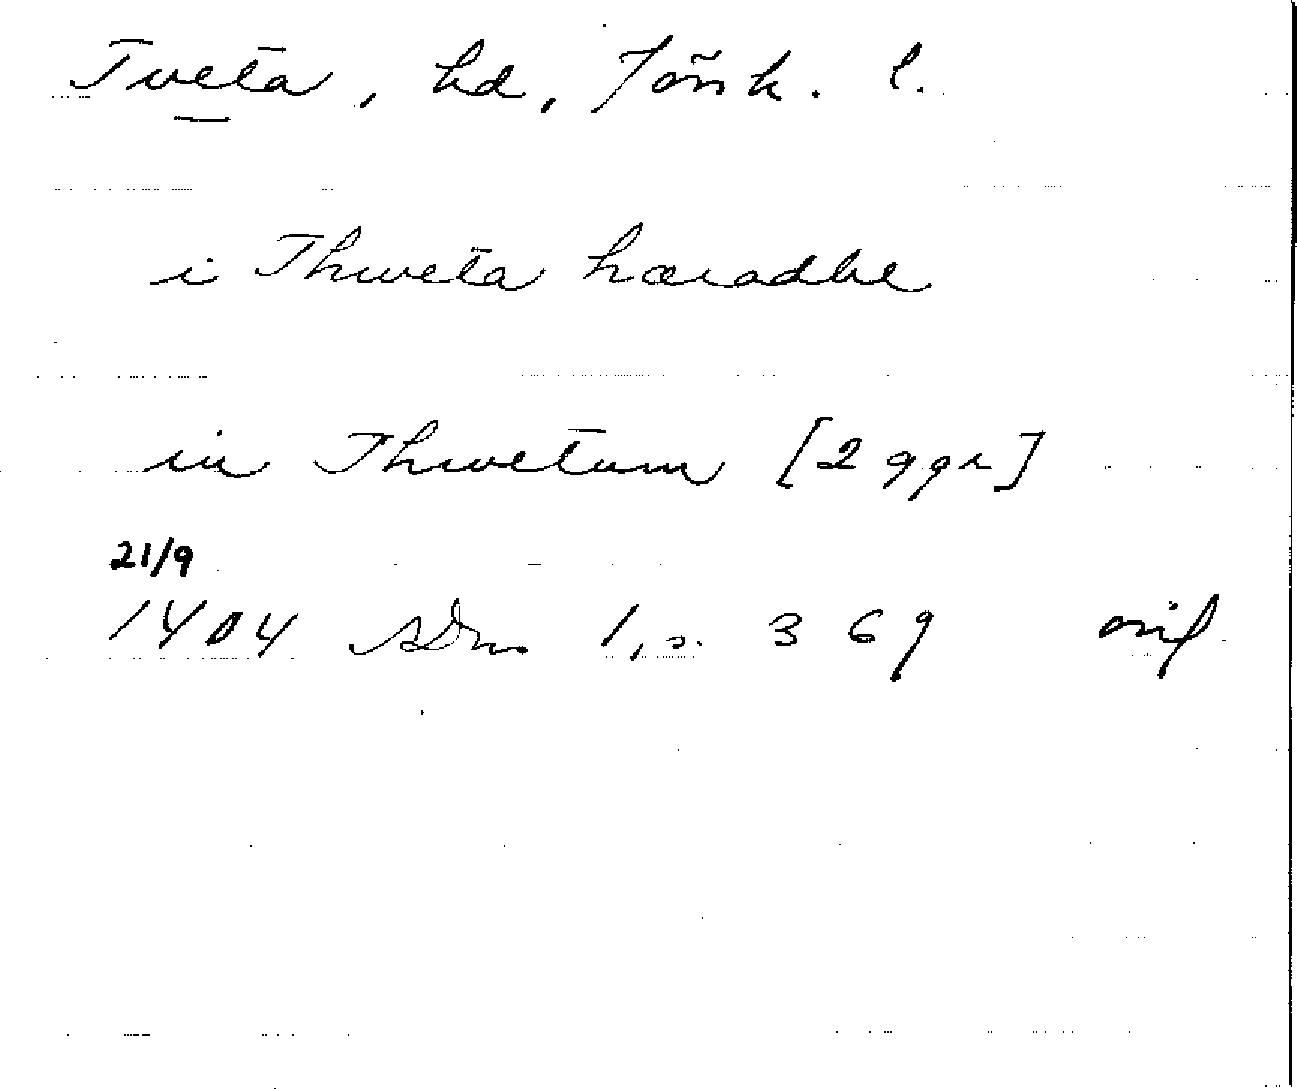 Tveta, hd, Jönk. l.
i Thweta hæradhe
in Thwetum [2 ggr]
21/9
1404 SDns 1, s. 369 orig